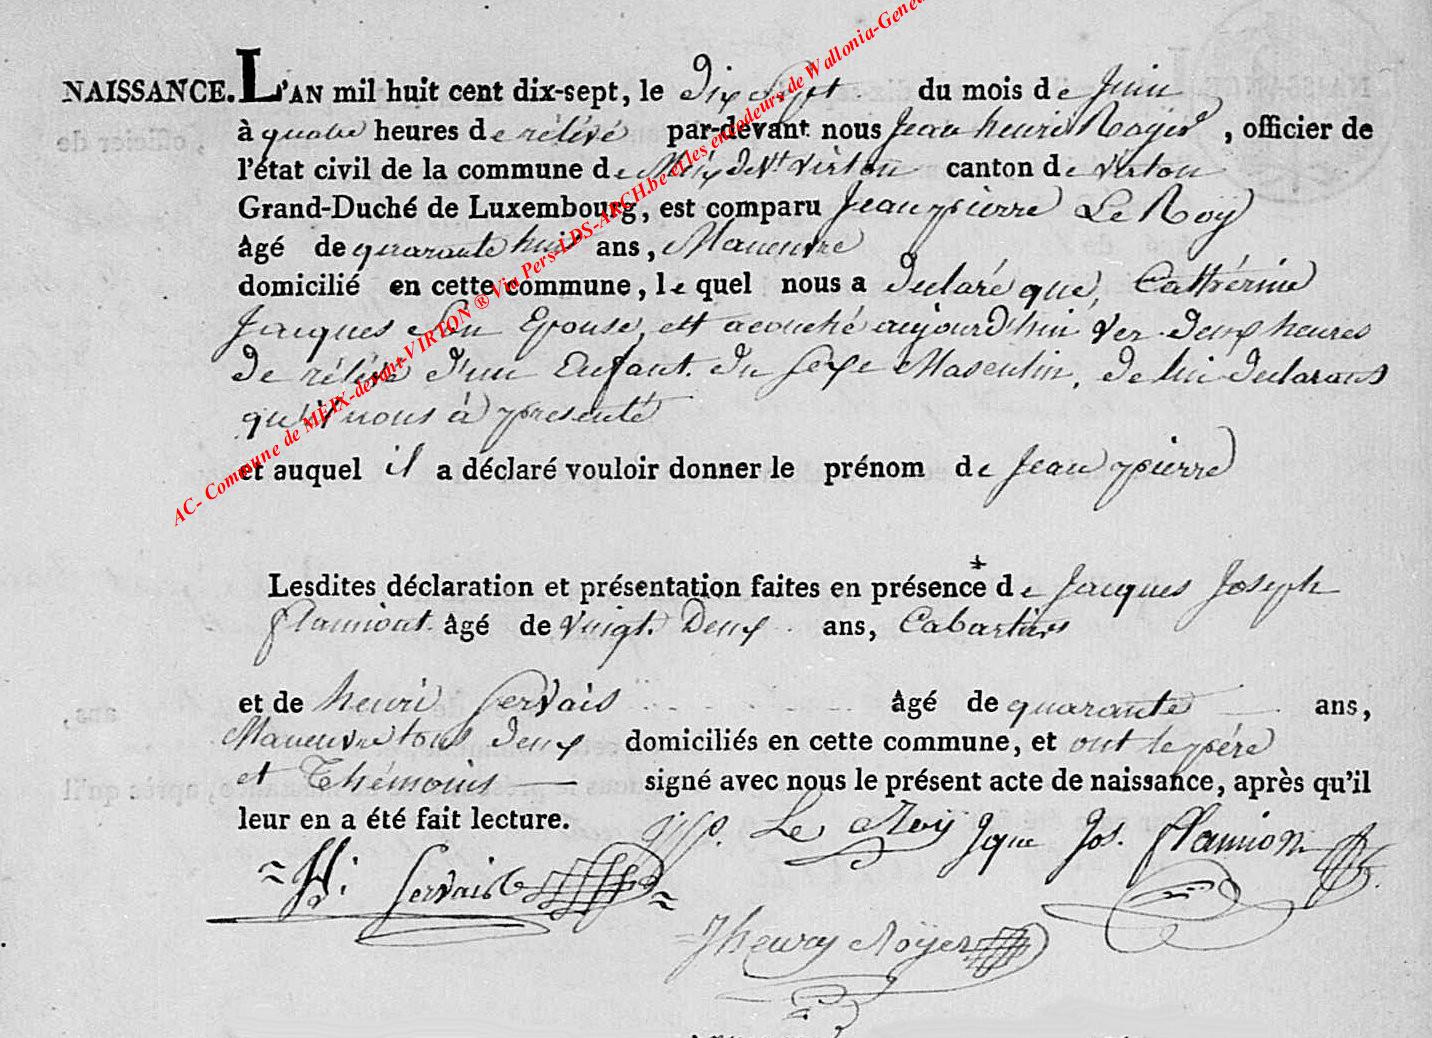 NAISSANCE. L'AN mil huit cent dix-sept, le dix Sept du mois de Juin
à quatre heures de rélévé par-devant nous Jean henri Royer, officier de
l'état civil de la commune de Méix devt virton canton de virton
Grand-Duché de Luxembourg, est comparu Jean pierre Le Roÿ
âgé de quarante huit ans, Maneuvre
domicilié en cette commune, le quel nous a declaré que, Cathérine
Jacques Son Epouse, est acouché aujourd'hui ver deux heures
de rélévé d'un Enfant du Sexe Masculin, de lui declarans
qu'il nous à presenté
et auquel il a déclaré vouloir donner le prénom de Jean pierre
Lesdites déclaration et présentation faites en présence de Jacques Joseph
flamiont âgé de vingt Deux ans, Cabartier
et de henri gervais âgé de quarante ans,
Maneuvre tous deux domiciliés en cette commune, et ont le pére
et Thémoins signé avec nous le présent acte de naissance, après qu'il
leur en a été fait lecture. Le Roÿ Jque Jos. flamion
H: gervais
Jhenry Roÿer
AC- Commune de MEIX-devant-VIRTON ® Via Pers-LDS-ARCH.be et les encodeurs de Wallonia-Genea